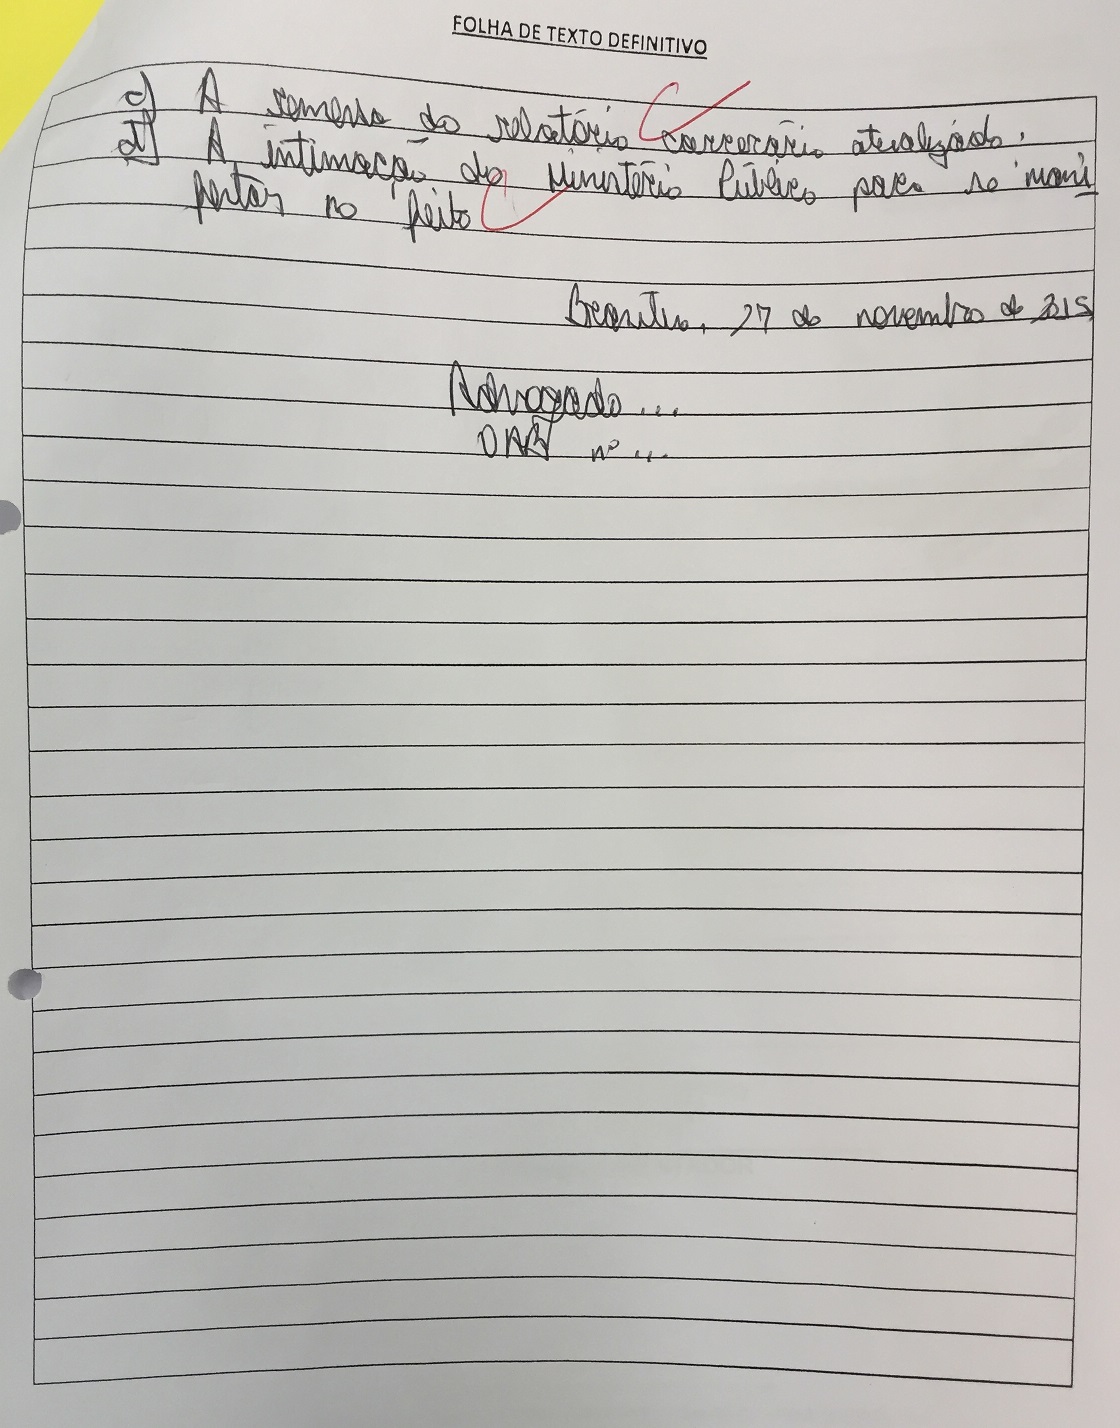 FOLHA DE TEXTO DEFINITIVO
c) A remessa do relatório carcerário atualizado.
d) A intimação do Ministério Público para se mani
festar no feito
Brasília, 27 de novembro de 2015
Advogado...
OAB nº ...